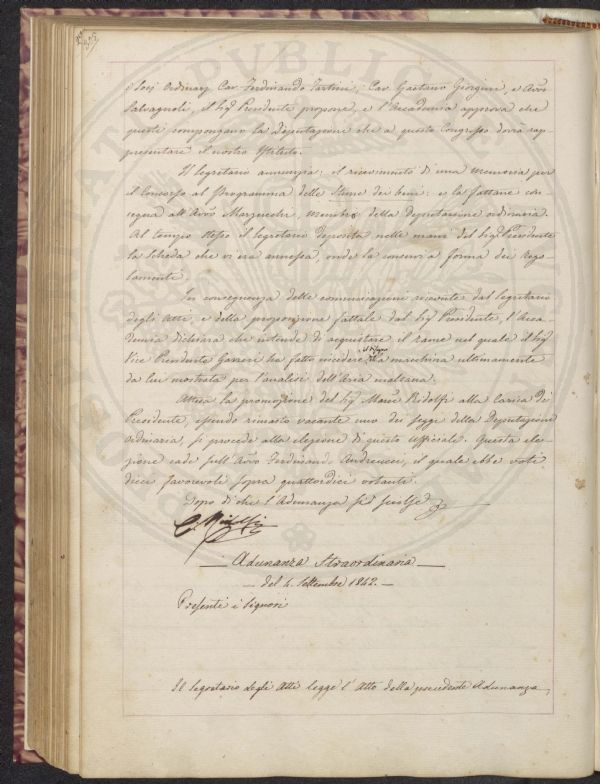 i Socj Ordinarj Cav. Ferdinando Tartini, Cav. Gaetano Giorgini, e Avvo
Salvagnoli, il Sigr. Presidente propone, e l'Accademia approva che
questi compongano la Deputazione che a questo Congresso dovrà rap-
presentare il nostro Istituto.
Il Segretario annunzia: il ricevimento di una memoria per
il Concorso al Programma delle Stime dei beni: e la fattane con-
segna all'Avvo. Marzucchi, membro della Deputazione ordinaria.
Al tempo stesso il Segretario deposita nelle mani del Sigr. Presidente
la Scheda che vi era annessa, onde la conservi a forma dei Rego-
lamenti.
In conseguenza delle comunicazioni ricevute dal Segretario
degli Atti, e della proposizione fattale dal Sigr. Presidente, l'Acca-
demia dichiara che intende di acquistare il rame nel quale il Sigr.
Vice Presidente Gazzeri ha fatto incidere il disegno della macchina ultimamente
da lui mostrata per l'analisi dell'Aria malsana.
Attesa la promozione del Sigr. March. Ridolfi alla Carica di
Presidente, essendo rimasto vacante uno dei seggi della Deputazione
ordinaria, si procede alla elezione di questo Uffiziale. Questa ele-
zione cade sull'Avvo. Ferdinando Andreucci, il quale ebbe voti
dieci favorevoli sopra quattordici votanti.
Dopo di che l'Adunanza si sciolse
C. Ridolfi
Adunanza Straordinaria
del 4. Settembre 1842.
Presenti i Signori
Il Segretario degli Atti legge l'Atto della precedente Adunanza,